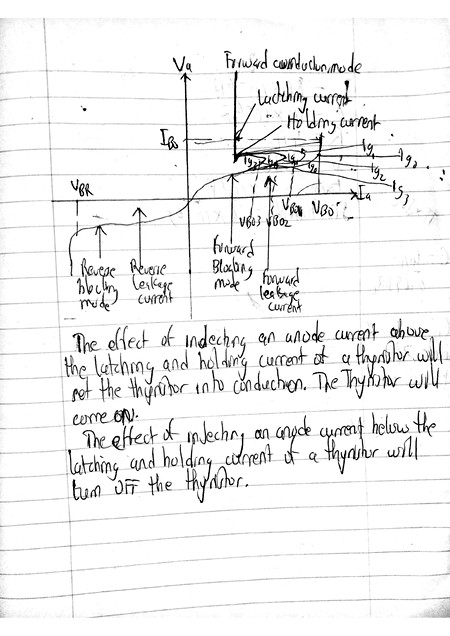 Va
Forward conduction mode
Latching current
Holding current
IBo
Ig1
Ig2
Ig3
VBR
Ia
VBO3
VBO2
VBO1
VBO
Reverse blocking mode
Reverse leakage current
Forward Blocking mode
Forward leakage current
The effect of injecting an anode current above
the latching and holding current of a thyristor will
set the thyristor into conduction. The Thyristor will
come ON.
The effect of injecting an anode current below the
latching and holding current of a thyristor will
turn OFF the thyristor.